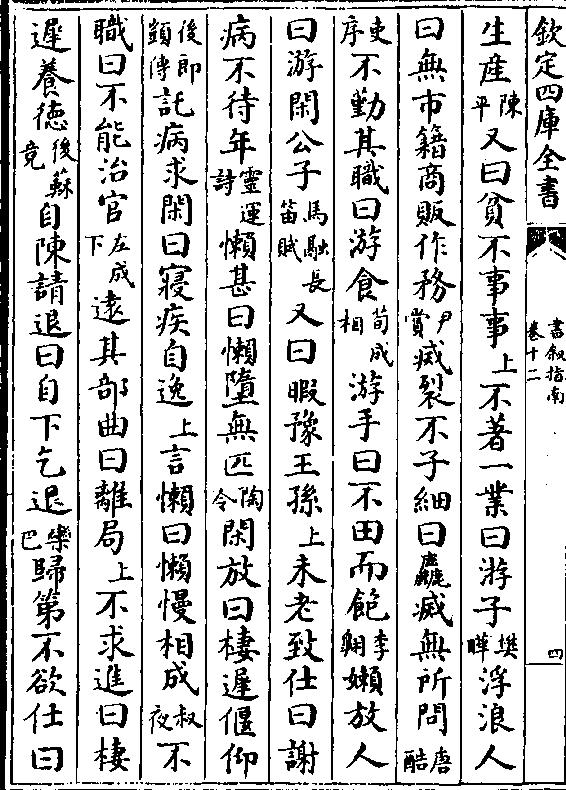 欽定四庫全書
書叙指南
卷十二
四
生産陳平又曰貧不事事上不著一業曰游子樊曄浮浪人
曰無市籍商販作務尹賞滅裂不子細曰麤滅無所問唐酷
吏序不勤其職曰游食荀成相游手曰不田而飽李翺嬾放人
曰游閑公子馬融長笛賦又曰暇豫王孫上未老致仕曰謝
病不待年靈運詩懶甚曰懶墮無匹陶令閑放曰棲遲偃仰
後郎顗傳託病求閑曰寢疾自逸上言懶曰懶慢相成叔夜不
職曰不能治官左成下逺其部曲曰離局上不求進曰棲
遲養徳後蘇竟自陳請退曰自下乞退欒巴歸第不欲仕曰